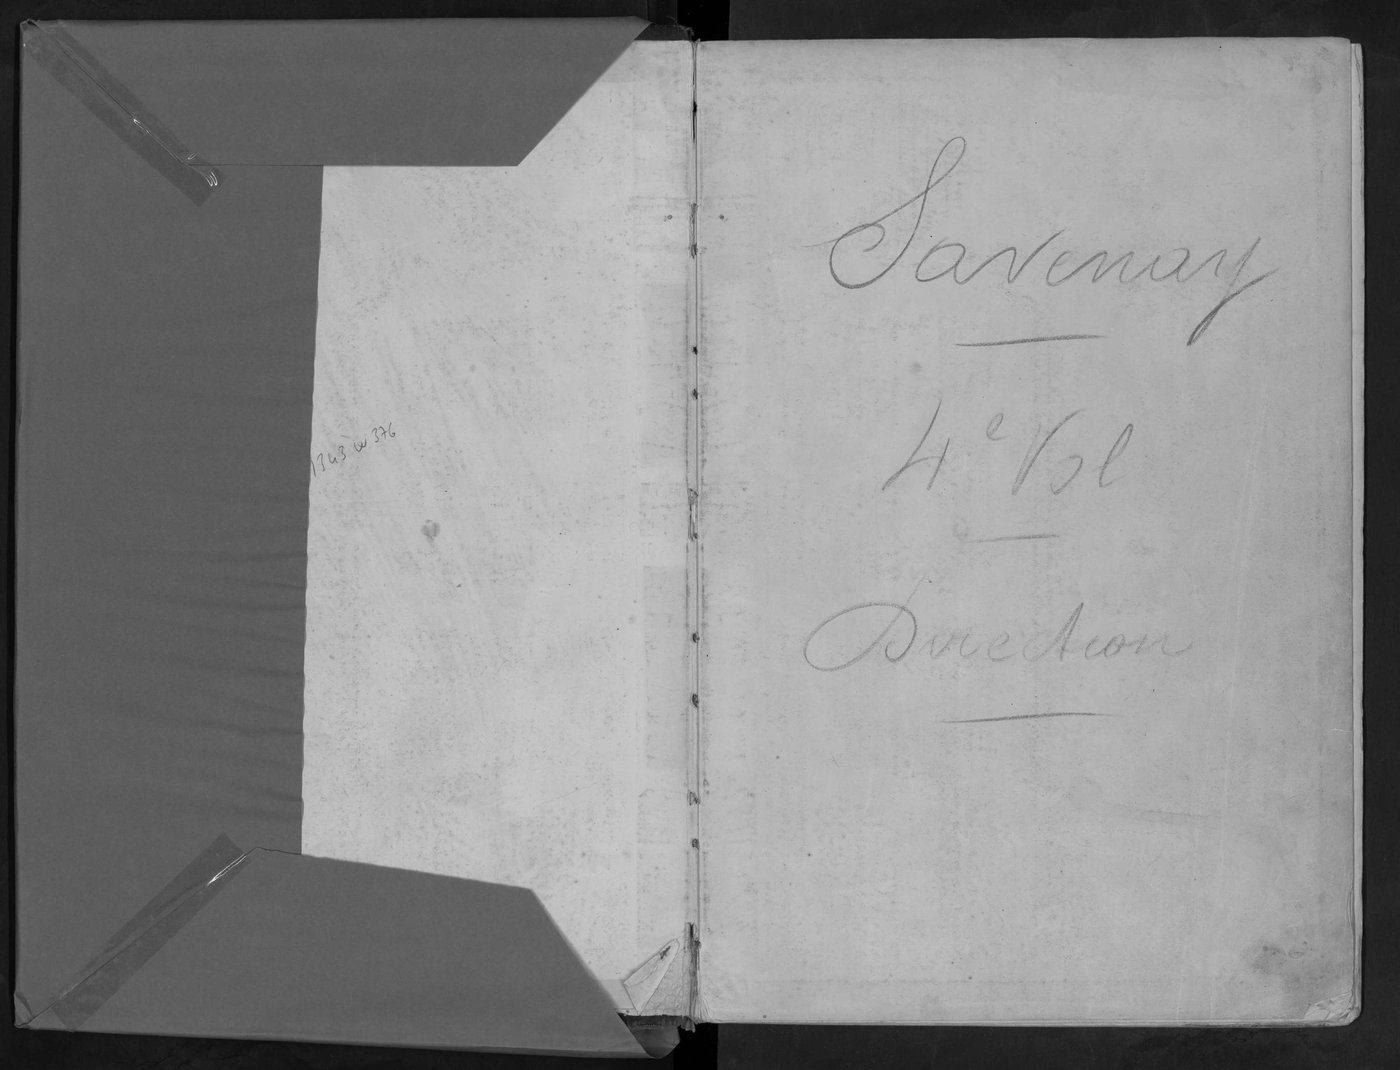 1343 W 376
Savenay
4e Vol
Direction